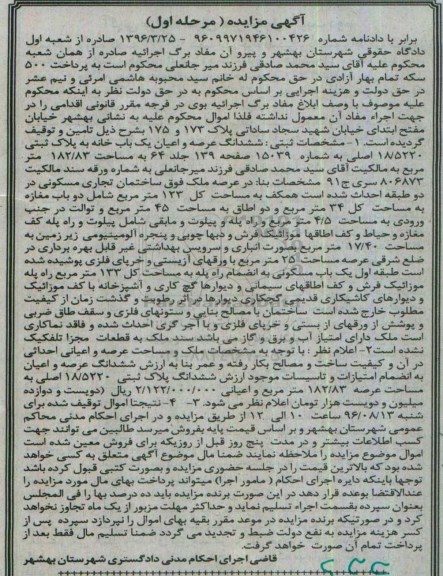 آگهی مزایده (مرحله اول)
برابر با دادنامه شماره ۹۶۰۹۹۷۱۹۴۶۱۰۰۴۲۶ - ۱۳۹۶/۳/۲۵ صادره از شعبه اول
دادگاه حقوقی شهرستان بهشهر و پیرو آن مفاد برگ اجرائیه صادره از همان شعبه
محکوم علیه آقای سید محمد صادقی فرزند میر جانعلی محکوم است به پرداخت ۵۰۰
سکه تمام بهار آزادی در حق محکوم له خانم سید محبوبه هاشمی امرئی و نیم عشر
در حق دولت و هزینه اجرایی بر اساس محکوم به در حق دولت نظر به اینکه محکوم
علیه موصوف با وصف ابلاغ مفاد برگ اجرائیه بوی در فرجه مقرر قانونی اقدامی را در
جهت اجراء مفاد آن معمول نداشته فلذا اموال محکوم علیه به نشانی بهشهر خیابان
مفتح ابتدای خیابان شهید سجاد ساداتی پلاک ۱۷۳ و ۱۷۵ بشرح ذیل تامین و توقیف
گردیده است. ۱- مشخصات ثبتی: ششدانگ عرصه و اعیان یک باب خانه به پلاک ثبتی
۱۸۵۲۲۰ اصلی به شماره ۱۵۰۳۹ صفحه ۱۳۹ جلد ۶۴ به مساحت ۱۸۲/۸۳ متر
مربع به مالکیت آقای سید محمد صادقی فرزند میرجانعلی به شماره ورقه سند مالکیت
۸۰۶۸۷۳ سری ج ۹۱ مشخصات بنا: در عرصه ملک فوق ساختمان تجاری مسکونی در
دو طبقه احداث شده است همکف به مساحت کل ۱۲۳ متر مربع شامل دو باب مغازه
به مساحت کل ۳۴ متر مربع و دو اطاق به مساحت ۴۵ متر مربع و توالت در جنب
ورودی به مساحت ۴/۵ متر مربع و راه پله و پیلوت و مابقی شامل پیلوت و راه پله کف
مغازه و حیاط و کف اطاقها موزائیک فرش و دبها چوبی و پنجره آلومینیومی زیر زمین به
مساحت ۱۷/۴۰ متر مربع بصورت انباری و سرویس بهداشتی غیر قابل بهره برداری در
ضلع شرقی عرصه مساحت ۲۵ متر مربع با ورقهای آزبستی و خرپای فلزی پوشیده شده
است طبقه اول یک باب مسکونی به انضمام راه پله به مساحت کل ۱۳۳ متر مربع راه پله
موزائیک فرش و کف اطاقهای سیمانی و دیوارها گچ کاری و آشپزخانه با کف موزائیک
و دیوارهای کاشیکاری قدیمی گچکاری دیوارها در اثر رطوبت و گذشت زمان از کیفیت
مطلوب خارج شده است ساختمان با مصالح بنایی و ستونهای فلزی و سقف طاق ضربی
و پوشش از ورقهای از بستی و خرپای فلزی و با آجر گری احداث شده و فاقد نماکاری
است ملک دارای امتیاز آب و برق و گاز می باشد سند ملک به قطعات مجزا تفکیک
نشده است ۲- اعلام نظر: با توجه به مشخصات ملک و مساحت عرصه و اعیانی احداثی
در آن و کیفیت ساخت و مصالح بکار رفته و عمر بنا به ارزش ششدانگ عرصه و اعیان
به انضمام امتیازات و تاسیسات موجود ارزش ششدانگ پلاک ثبتی ۱۸۵۲۲۰ اصلی به
مساحت عرصه ۱۸۲/۸۳ متر مربع اعیان ۲/۱۲۲/۰۰۰/۰۰۰ ریال (دویست و دوازده
میلیون و دویست هزار تومان اعلام نظر می شود. ۳- ۴- نتیجتا اموال توقیف شده برای
شنبه ۹۶/۰۸/۱۳ ساعت ۱۰ الی ۱۲ از طریق مزایده و در اجرای احکام مدنی محاکم
عمومی شهرستان بهشهر و بر اساس قیمت پایه بفروش میرسد طالبین می توانند جهت
کسب اطلاعات بیشتر و در مدت پنج روز قبل از روزیکه برای فروش معین شده است
اموال موضوع مزایده را ملاحظه نمایند ضمنا مال موضوع آگهی متعلق به کسی خواهد
شده بود که بالاترین قیمت را در جلسه حضوری مزایده و بصورت کتبی قبول کرده باشد
توجها باینکه دایره اجرای احکام (مامور اجرا) میتواند پرداخت بهای مال مورد مزایده را
عندالاقتضا بوعده قرار دهد در این صورت برنده مزایده باید ده درصد بها را فی المجلس
بعنوان سپرده بقسمت اجراء تسلیم نماید و حداکثر مهلت مزبور از یک ماه تجاوز نخواهد
کرد و در صورتیکه برنده مزایده در موعد مقرر بقیه بهای اموال را نپردازد سپرده پس از
کسر هزینه مزایده به نفع دولت ضبط و تجدید می گردد ضمنا تسلیم مال فقط بعد از
پرداخت تمام آن صورت خواهد گرفت.
قاضی اجرای احکام مدنی دادگستری شهرستان بهشهر